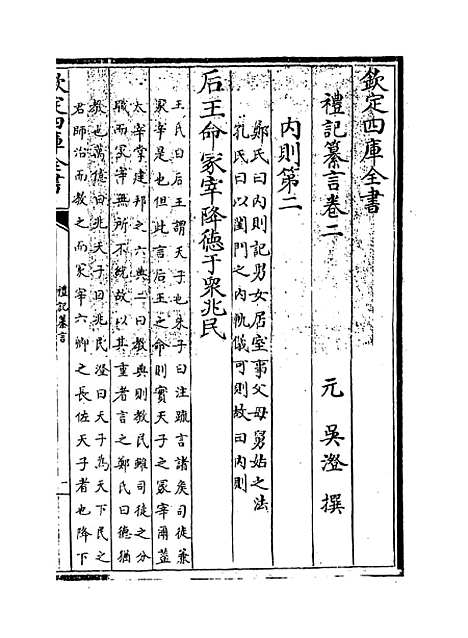 欽定四庫全書
禮記纂言卷二
元 吳澄 撰
內則第二
鄭氏曰內則記男女居室事父母舅姑之法
孔氏曰以閨門之內軌儀可則故曰內則
后王命冢宰降德于衆兆民
王氏曰后王謂天子也朱子曰注疏言諸矦司徒兼
冢宰是也但此言后王之命則實天子之冢宰爾蓋
太宰掌建邦之六典二曰敎典則敎民雖司徒之分
職而冢宰無所不統故以其重者言之鄭氏曰德猶
敎也萬億曰兆天子曰兆民澄曰天子爲天下民之
君師治而教之而冢宰六卿之長佐天子者也降下
欽定四庫全書
禮記纂言
一